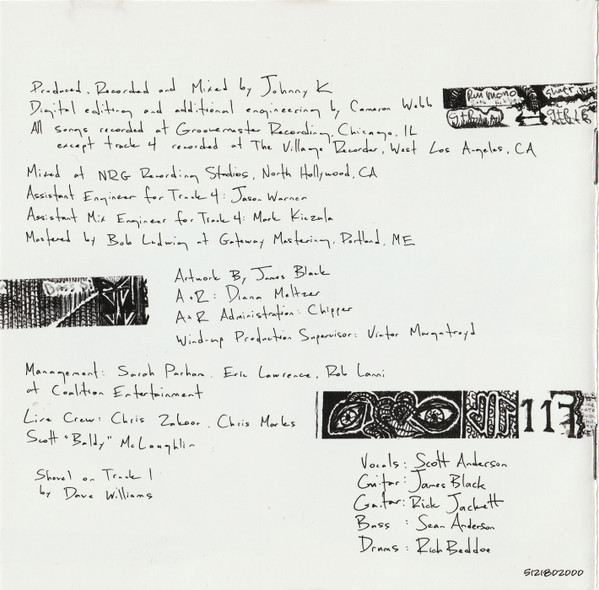 Produced, Recorded and Mixed by Johnny K
Digital editing and additional engineering by Cameron Webb
All songs recorded at Groovemaster Recording, Chicago, IL
except track 4 recorded at The Village Recorder, West Los Angeles, CA
Mixed at NRG Recording Studios, North Hollywood, CA
Assistant Engineer for Track 4: Jason Warner
Assistant Mix Engineer for Track 4: Mark Kiczula
Mastered by Bob Ludwig at Gateway Mastering, Portland, ME
Artwork By James Black
A+R: Diana Meltzer
A+R Administration: Chipper
Wind-up Production Supervisor: Victor Murgatroyd
Management: Sarah Parham, Eric Lawrence, Rob Lanni
at Coalition Entertainment
Live Crew: Chris Zakoor, Chris Marks
Scott "Baldy" McLaughlin
117
Shovel on Track 1
by Dave Williams
Vocals: Scott Anderson
Guitar: James Black
Guitar: Rick Jackett
Bass : Sean Anderson
Drums: Rich Beddoe
5121802000